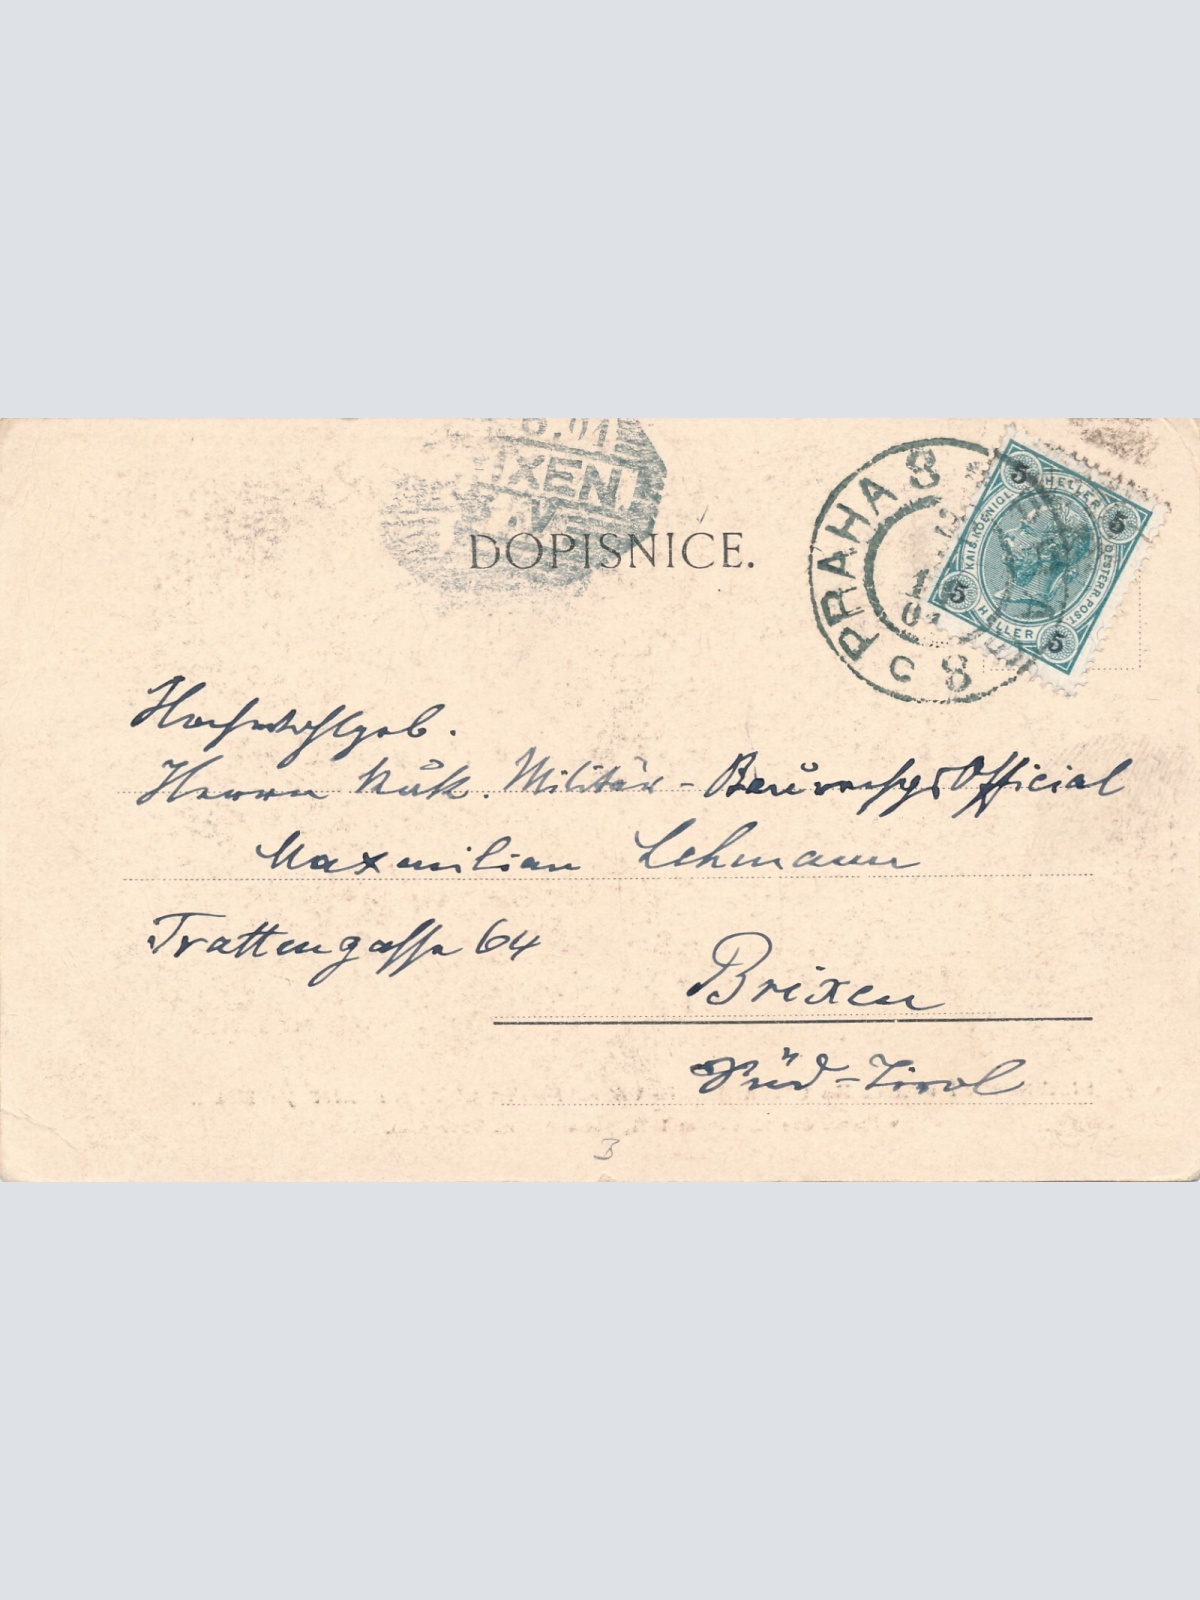 8.01
IXEN.
DOPISNICE.
PRAHA 8
c 8
5 HELLER 5
KAIS. KOENIGL. OESTERR. POST.
5 HELLER 5
Hochwohlgeb.
Herrn k u k. Militär - Official
Maximilian Lehmann
Trattengasse 64
Brixen
Süd-Tirol